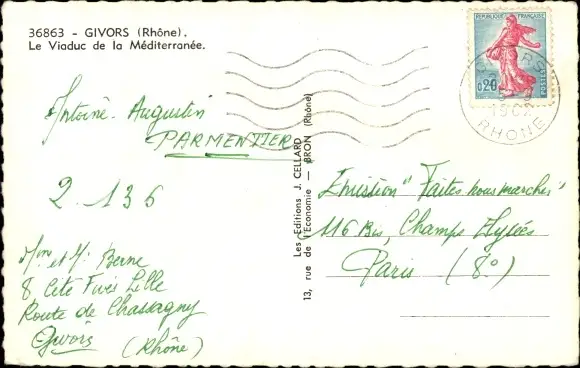 36863 - GIVORS (Rhône).
Le Viaduc de la Méditerranée.
REPUBLIQUE FRANÇAISE
0,20
POSTES
GIVORS
1962
RHONE
Antoine-Augustin
PARMENTIER
2.136
Mme et Mr Berne
8 Cité Fives Lille
Route de Chassagny
Givors
(Rhône)
Les Editions J. CELLARD
13, rue de l'Economie — BRON (Rhône)
Emission "Faites nous marcher"
116 Bis, Champs Elysées
Paris (8°)